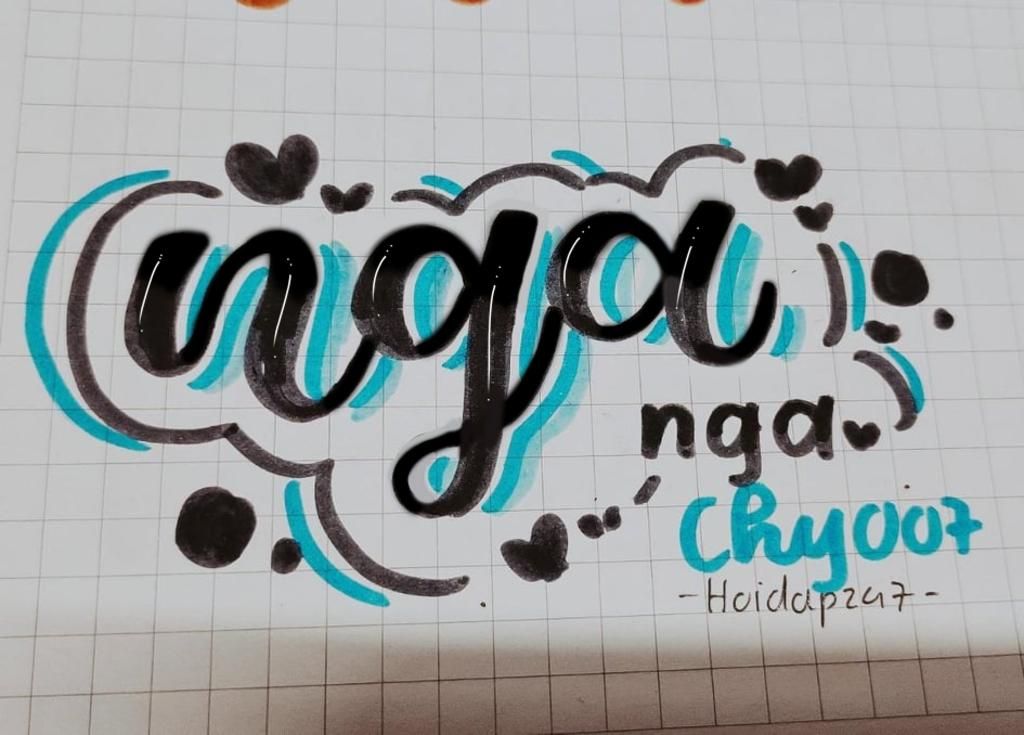 nga
nga
Chy007
-Hoidap247-